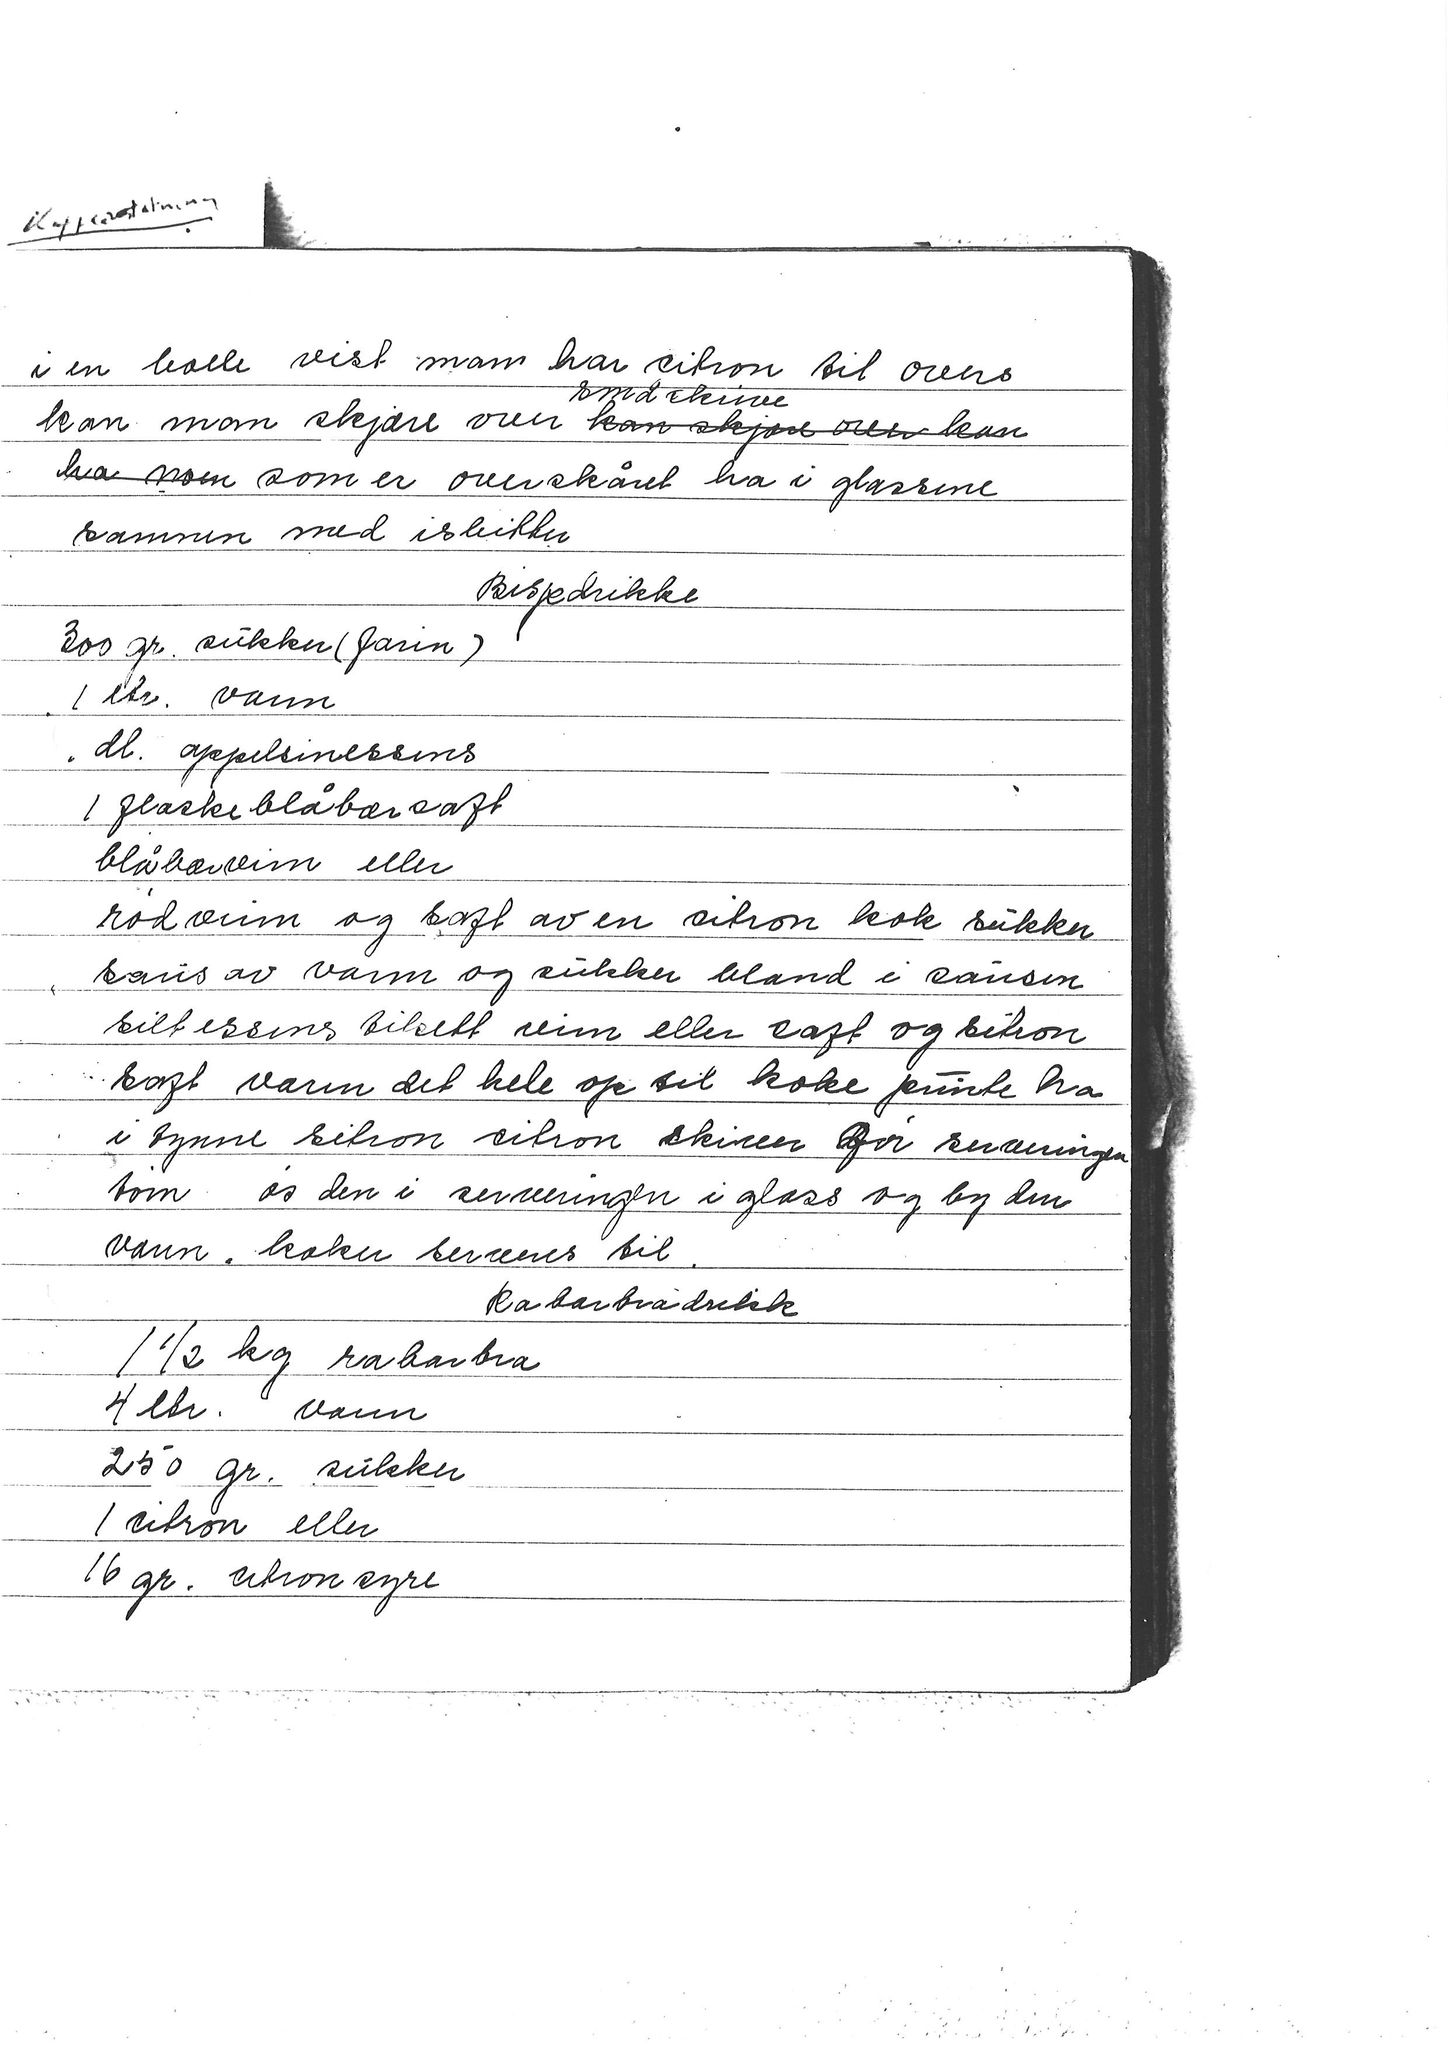 Kaffeerstatning
i en bolle vist man har citron til overs
små skive
kan man skjære over kan skjære over kan
ha noen som er overskåret ha i glassene
sammen med isbitter
Bispedrikke
300 gr. sukker (farin)
1 ltr. vann
. dl. appelsinessens
1 flaske blåbærsaft
blåbærvin eller
rød vin og saft av en citron kok sukker
saus av vann og sukker bland i sausen
silt essens tilsett vin eller saft og sitron
saft varm det hele op til koke punkte ha
i tynne sitron citron skiver før serveringen
øs den i serveringen i glass og by den
varm. koker serveres til.
Rabarbradrikk
1 1/2 kg rabarbra
4 ltr. vann
250 gr. sukker
1 citron eller
16 gr. citronsyre